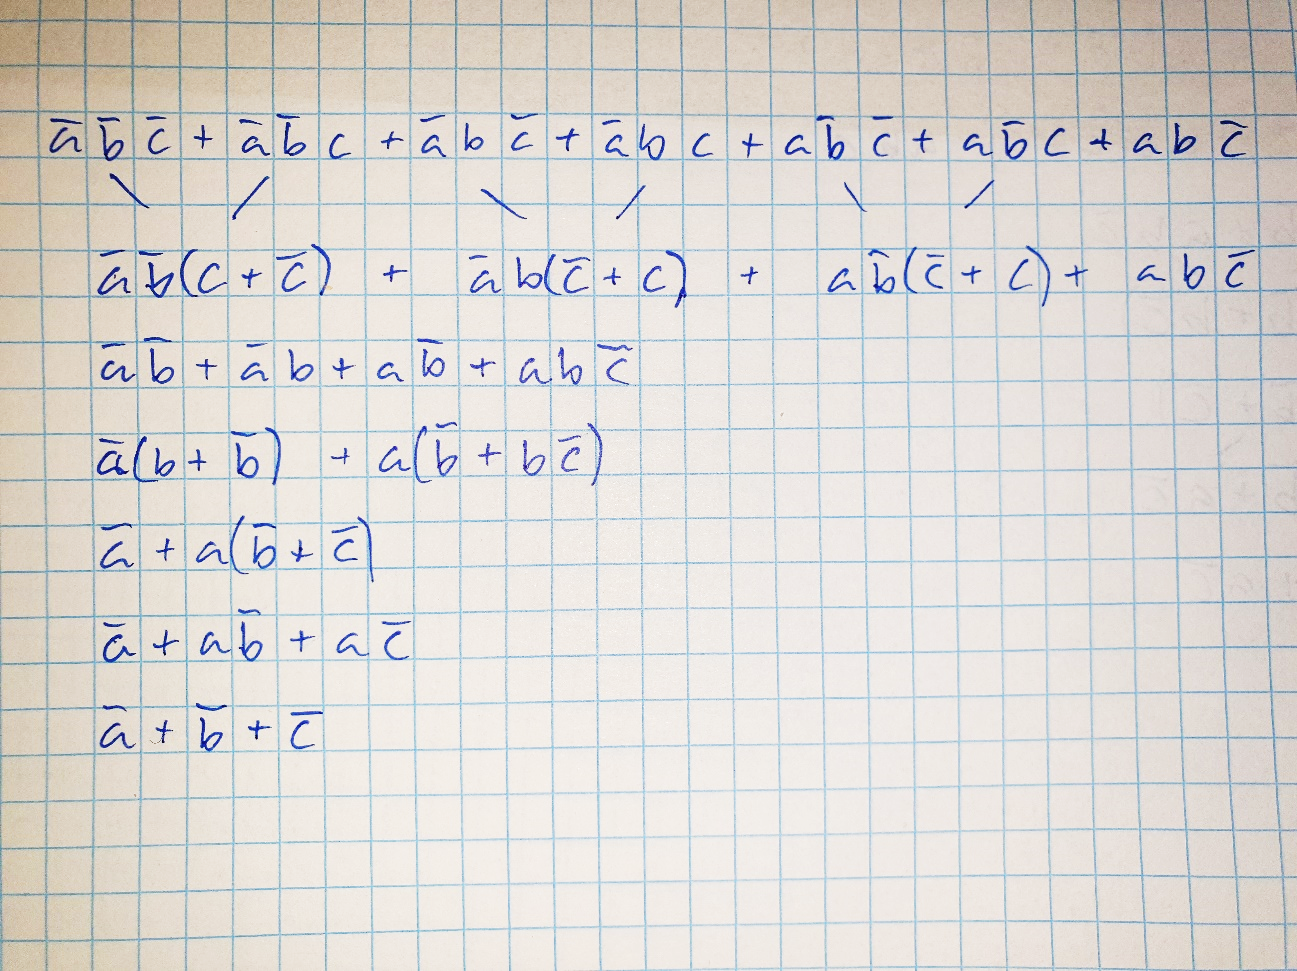 a̅ b̅ c̅ + a̅ b̅ c + a̅ b c̅ + a̅ b c + a b̅ c̅ + a b̅ c + a b c̅
a̅ b̅ (c + c̅) + a̅ b (c̅ + c) + a b̅ (c̅ + c) + a b c̅
a̅ b̅ + a̅ b + a b̅ + a b c̅
a̅ (b + b̅) + a (b̅ + b c̅)
a̅ + a (b̅ + c̅)
a̅ + a b̅ + a c̅
a̅ + b̅ + c̅